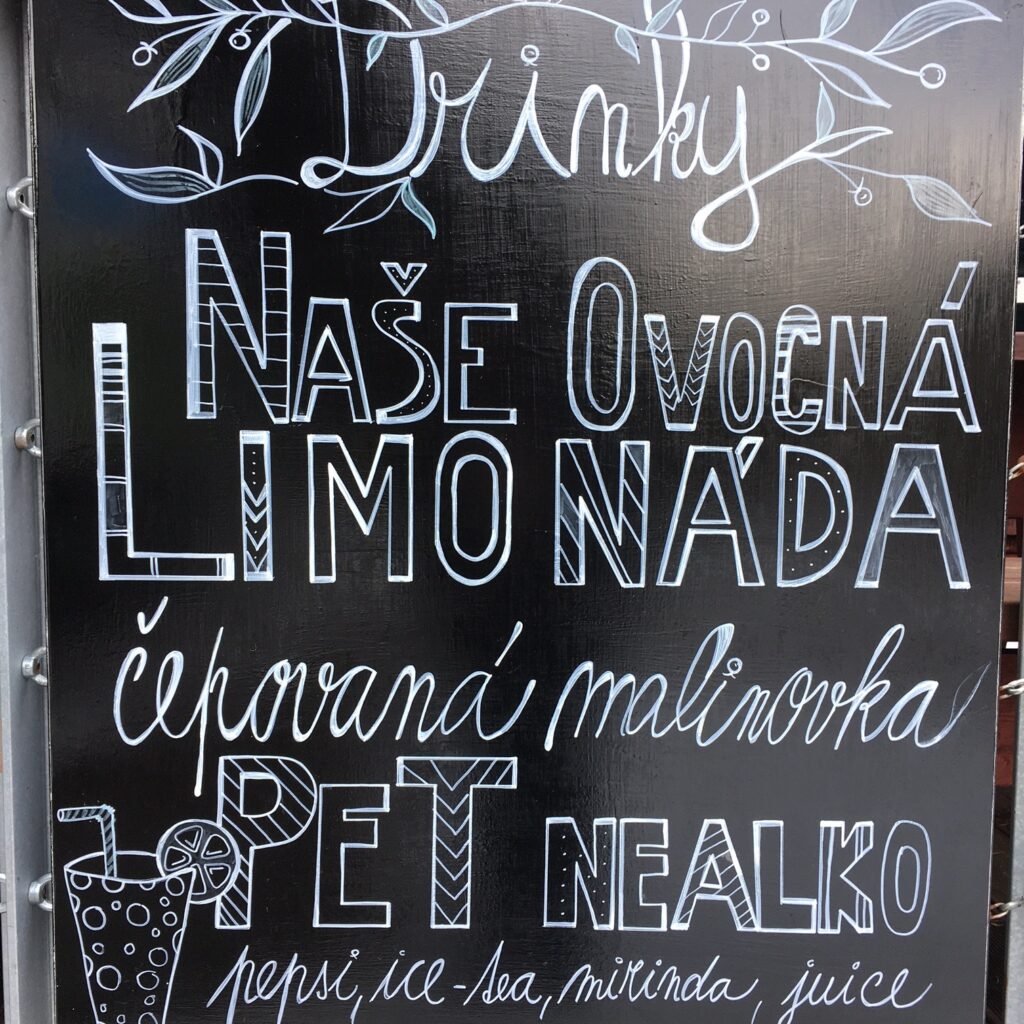 Drinky
NAŠE OVOCNÁ
LIMONÁDA
čepovaná malinovka
PET NEALKO
pepsi, ice-tea, mirinda, juice